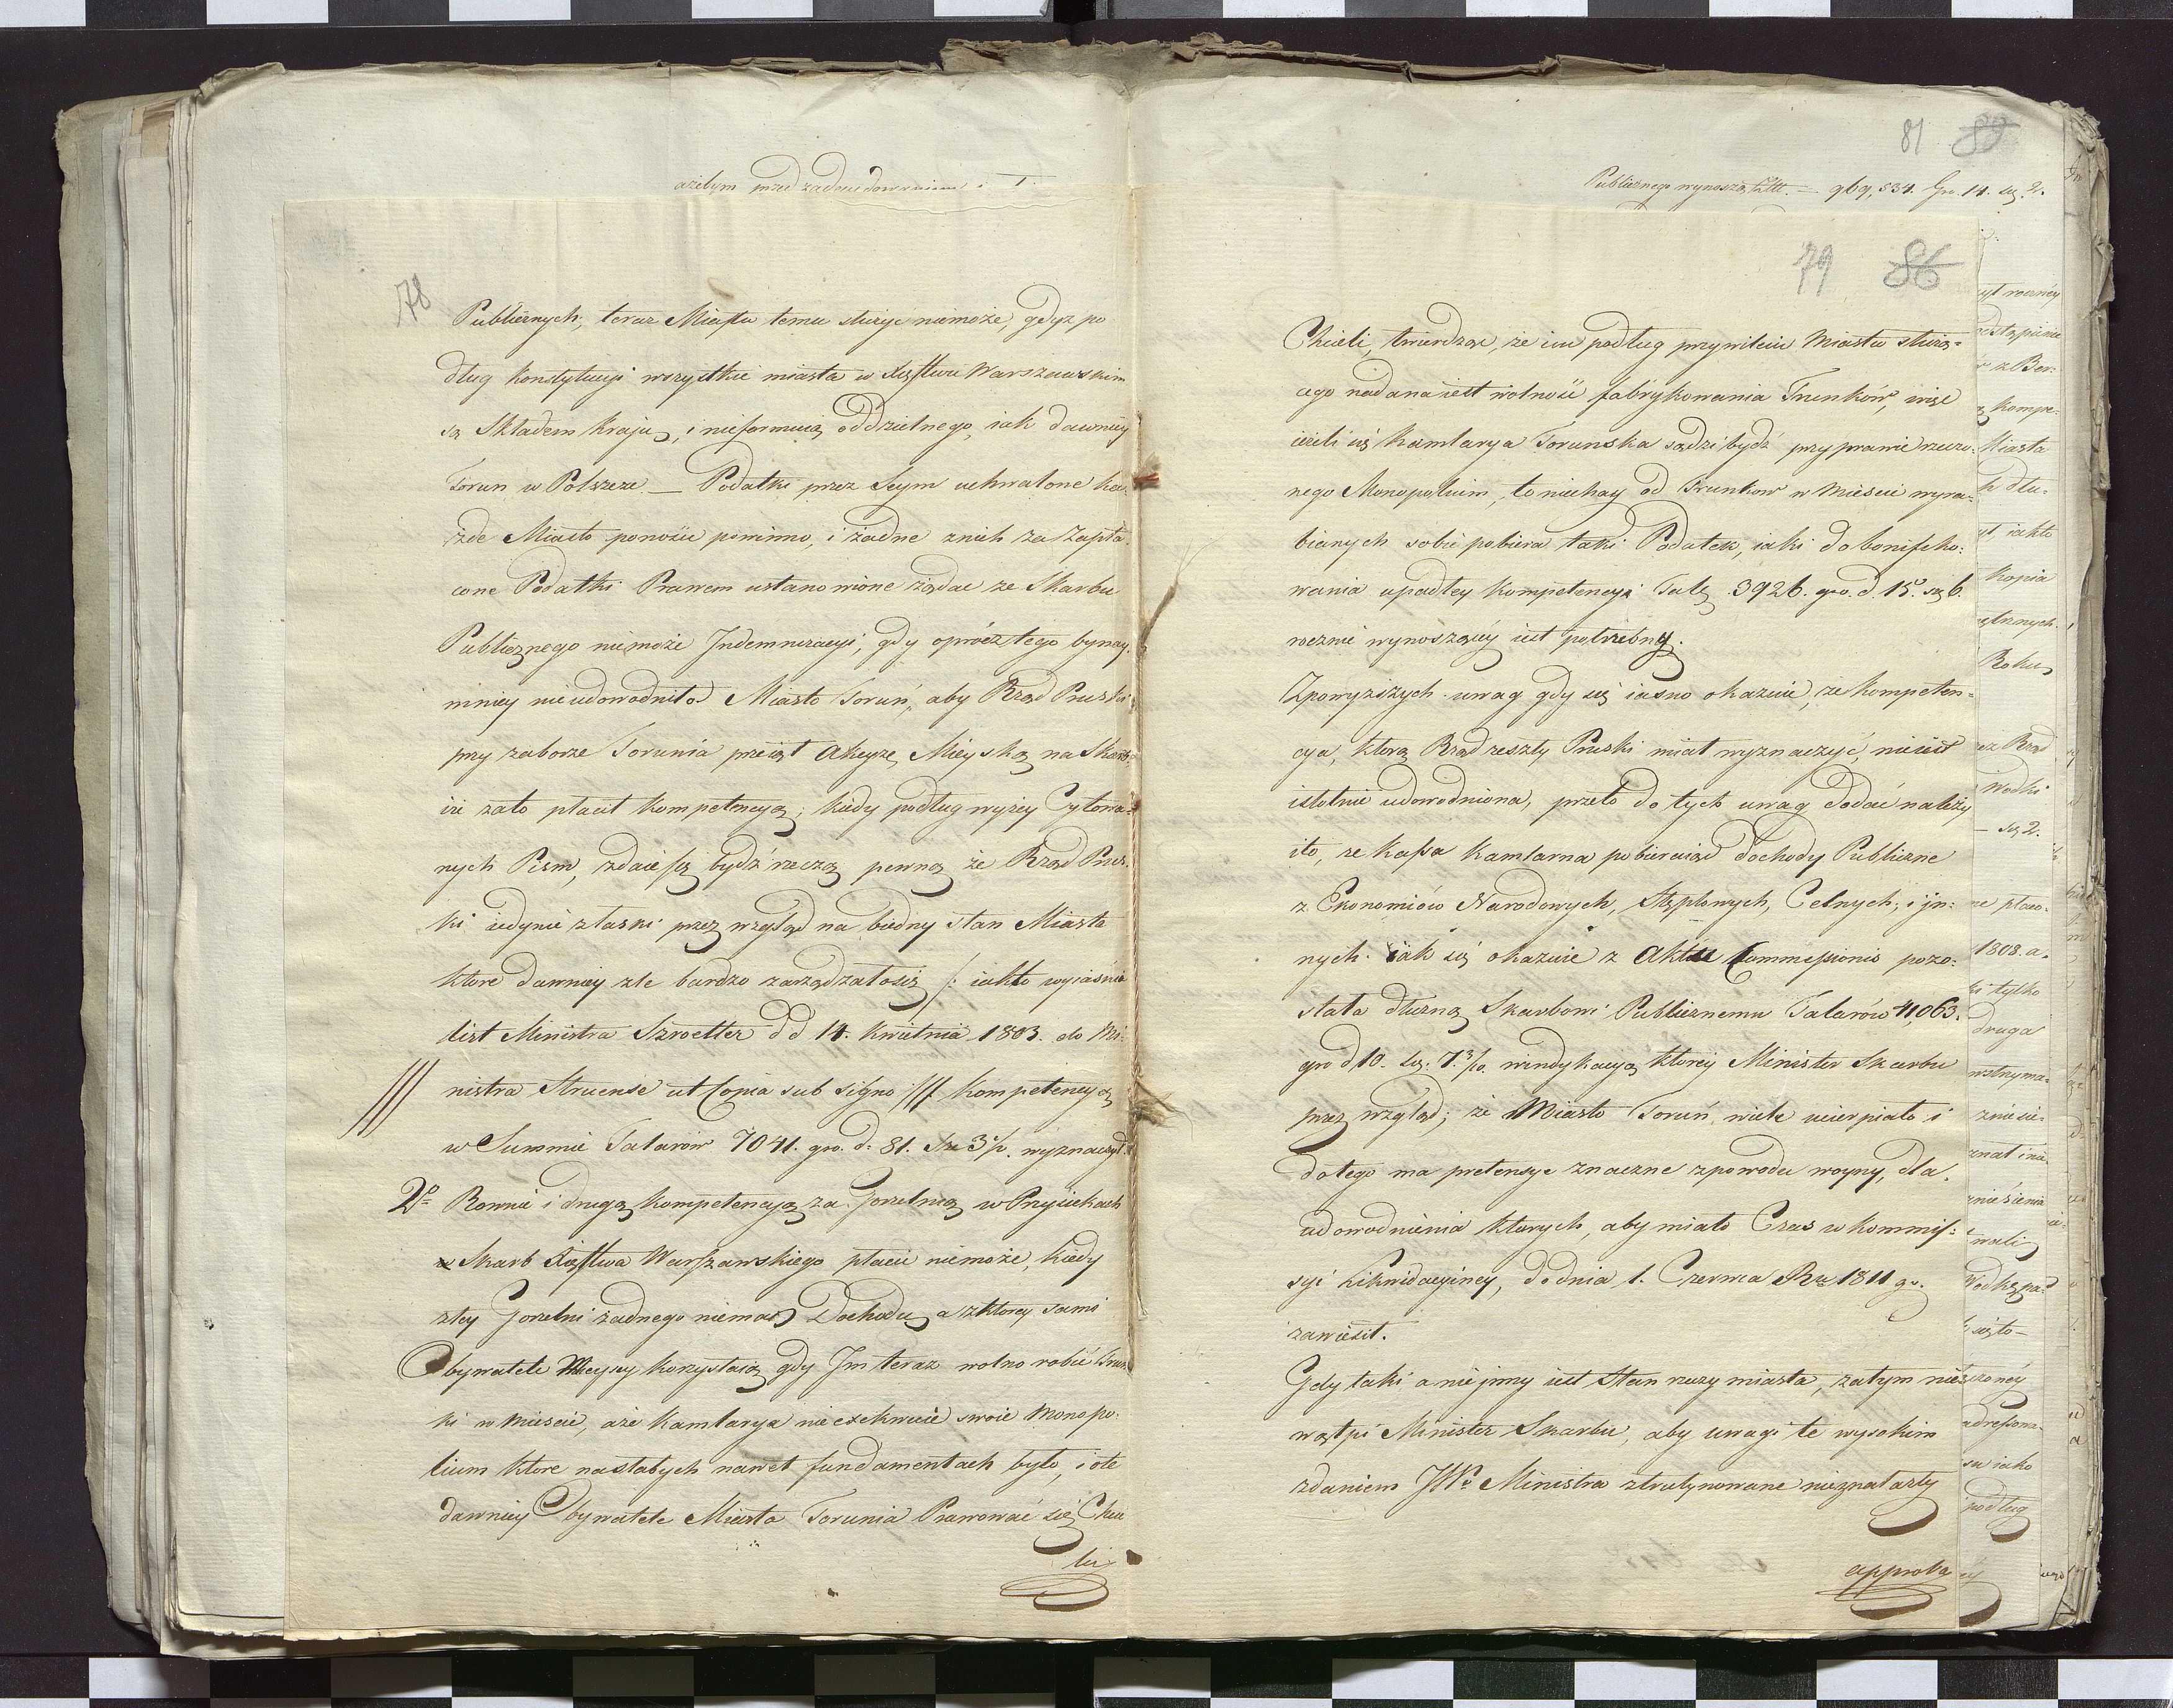 81 89
Publicznego wynoszą 969,534. Gr. 14. sz. 2.
78
Publicznych, teraz Miastu temu służyć niemoże, gdyż po
dług konstytucyi wszystkie miasta w Xięstwie Warszawskim
są Składem kraju, i nieformuią oddzielnego, iak dawniey
Torun w Polszcze — Podatki przez Seym uchwalone ka-
żde Miasto ponosić powinno, i żadne znich za zapła-
cone Podatki Prawem ustanowione żądać ze Skarbu
Publicznego niemoże Indemnizacyi, gdy oprócz tego bynay-
mniey nieudowodniło Miasto Toruń, aby Rząd Pruski
przy zaborze Torunia przeiął akcyzę Mieyską na Skarb
iże zato płacił kompetencyą; kiedy podług wyżey Cytowa-
nych Pism, zdaie się bydź rzeczą pewną że Rząd Prus-
ki iedynie złaski przez wzgląd na biedny stan Miasta
ktore dawniey zle bardzo zarządzało się /: iakto wyiaśnia
list Ministra Szroetter d d 14. kwietnia 1803. do Mi-
/// nistra Struense ut Copia sub signo /// kompetencyą
w Summie Talarów 7041. gro. d. 81. 3 f. wyznaczył
2o Rownie i drugą kompetencyą za Gorzelnią w Przysiekach
Skarb Xięstwa Warszawskiego płacić niemoże, kiedy
ztey Gorzelni żadnego niema Dochodu, a zktorey sami
Obywatele Mieyscy korzystaią gdy Im teraz wolno robić Trun-
ki w Mieście, aże kamlarya nie exekwuie swoie Monopo-
lium ktore nasłabych nawet fundamentach było, i ole
dawniey Obywatele Miasta Torunia Prawować się Chcie
li
79 86
Chcieli, twierdząc, że im podług przywileiu Miastu służą-
cego nadana iest wolność fabrykowania Trunków, więc
ieżeli się kamlarya Toruńska sądzi bydź przy prawie rzeczo-
nego Monopolium, to niechay od Trunkow w Mieście wyra-
bianych sobie pobiera taki Podatek, iaki do bonifiko-
wania upadłey kompetencyi Tal. 3926. gro. d. 15. sz 6.
rocznie wynoszącéy iest potrzebny.
Zpowyższych uwag gdy się iasno okazuie, że kompeten-
cya, którą Rząd zeszły Pruski miał wyznaczyć, nieiest
istotnie udowodniona, przeto do tych uwag dodać należy
ito, że kassa kamlarna pobieraiąc Dochody Publiczne
z Ekonomiów Narodowych, Stęplowych, Celnych, i in-
nych. iak się okazuie z Aktu Commissionis pozo-
stała dłużną Skarbowi Publicznemu Talarów 41,063.
gro d 10. sz. 7. windykacyą ktorey Minister Skarbu
przez wzgląd; że Miasto Toruń wiele ucierpiało i
do tego ma pretensye znaczne zpowodu woyny, dla
udowodnienia ktorych, aby miało Czas w kommis-
syi Likwidacyiney, do dnia 1. Czerwca Ru 1811 go.
zawiesił.
Gdy taki a nie inny iest Stan rzeczy miasta, zatym nie
wątpi Minister Skarbu, aby uwagi te wysokim
zdaniem JWo Ministra ztrutynowane nieznalazły
approba